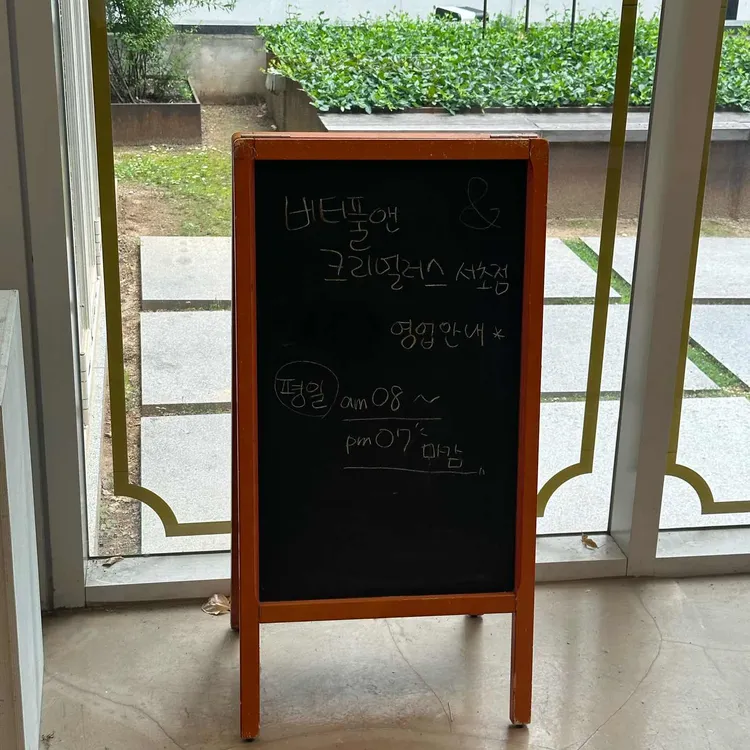 버터풀앤 &
크리멀러스 서초점
영업안내 *
평일 am 08 ~
pm 07 마감